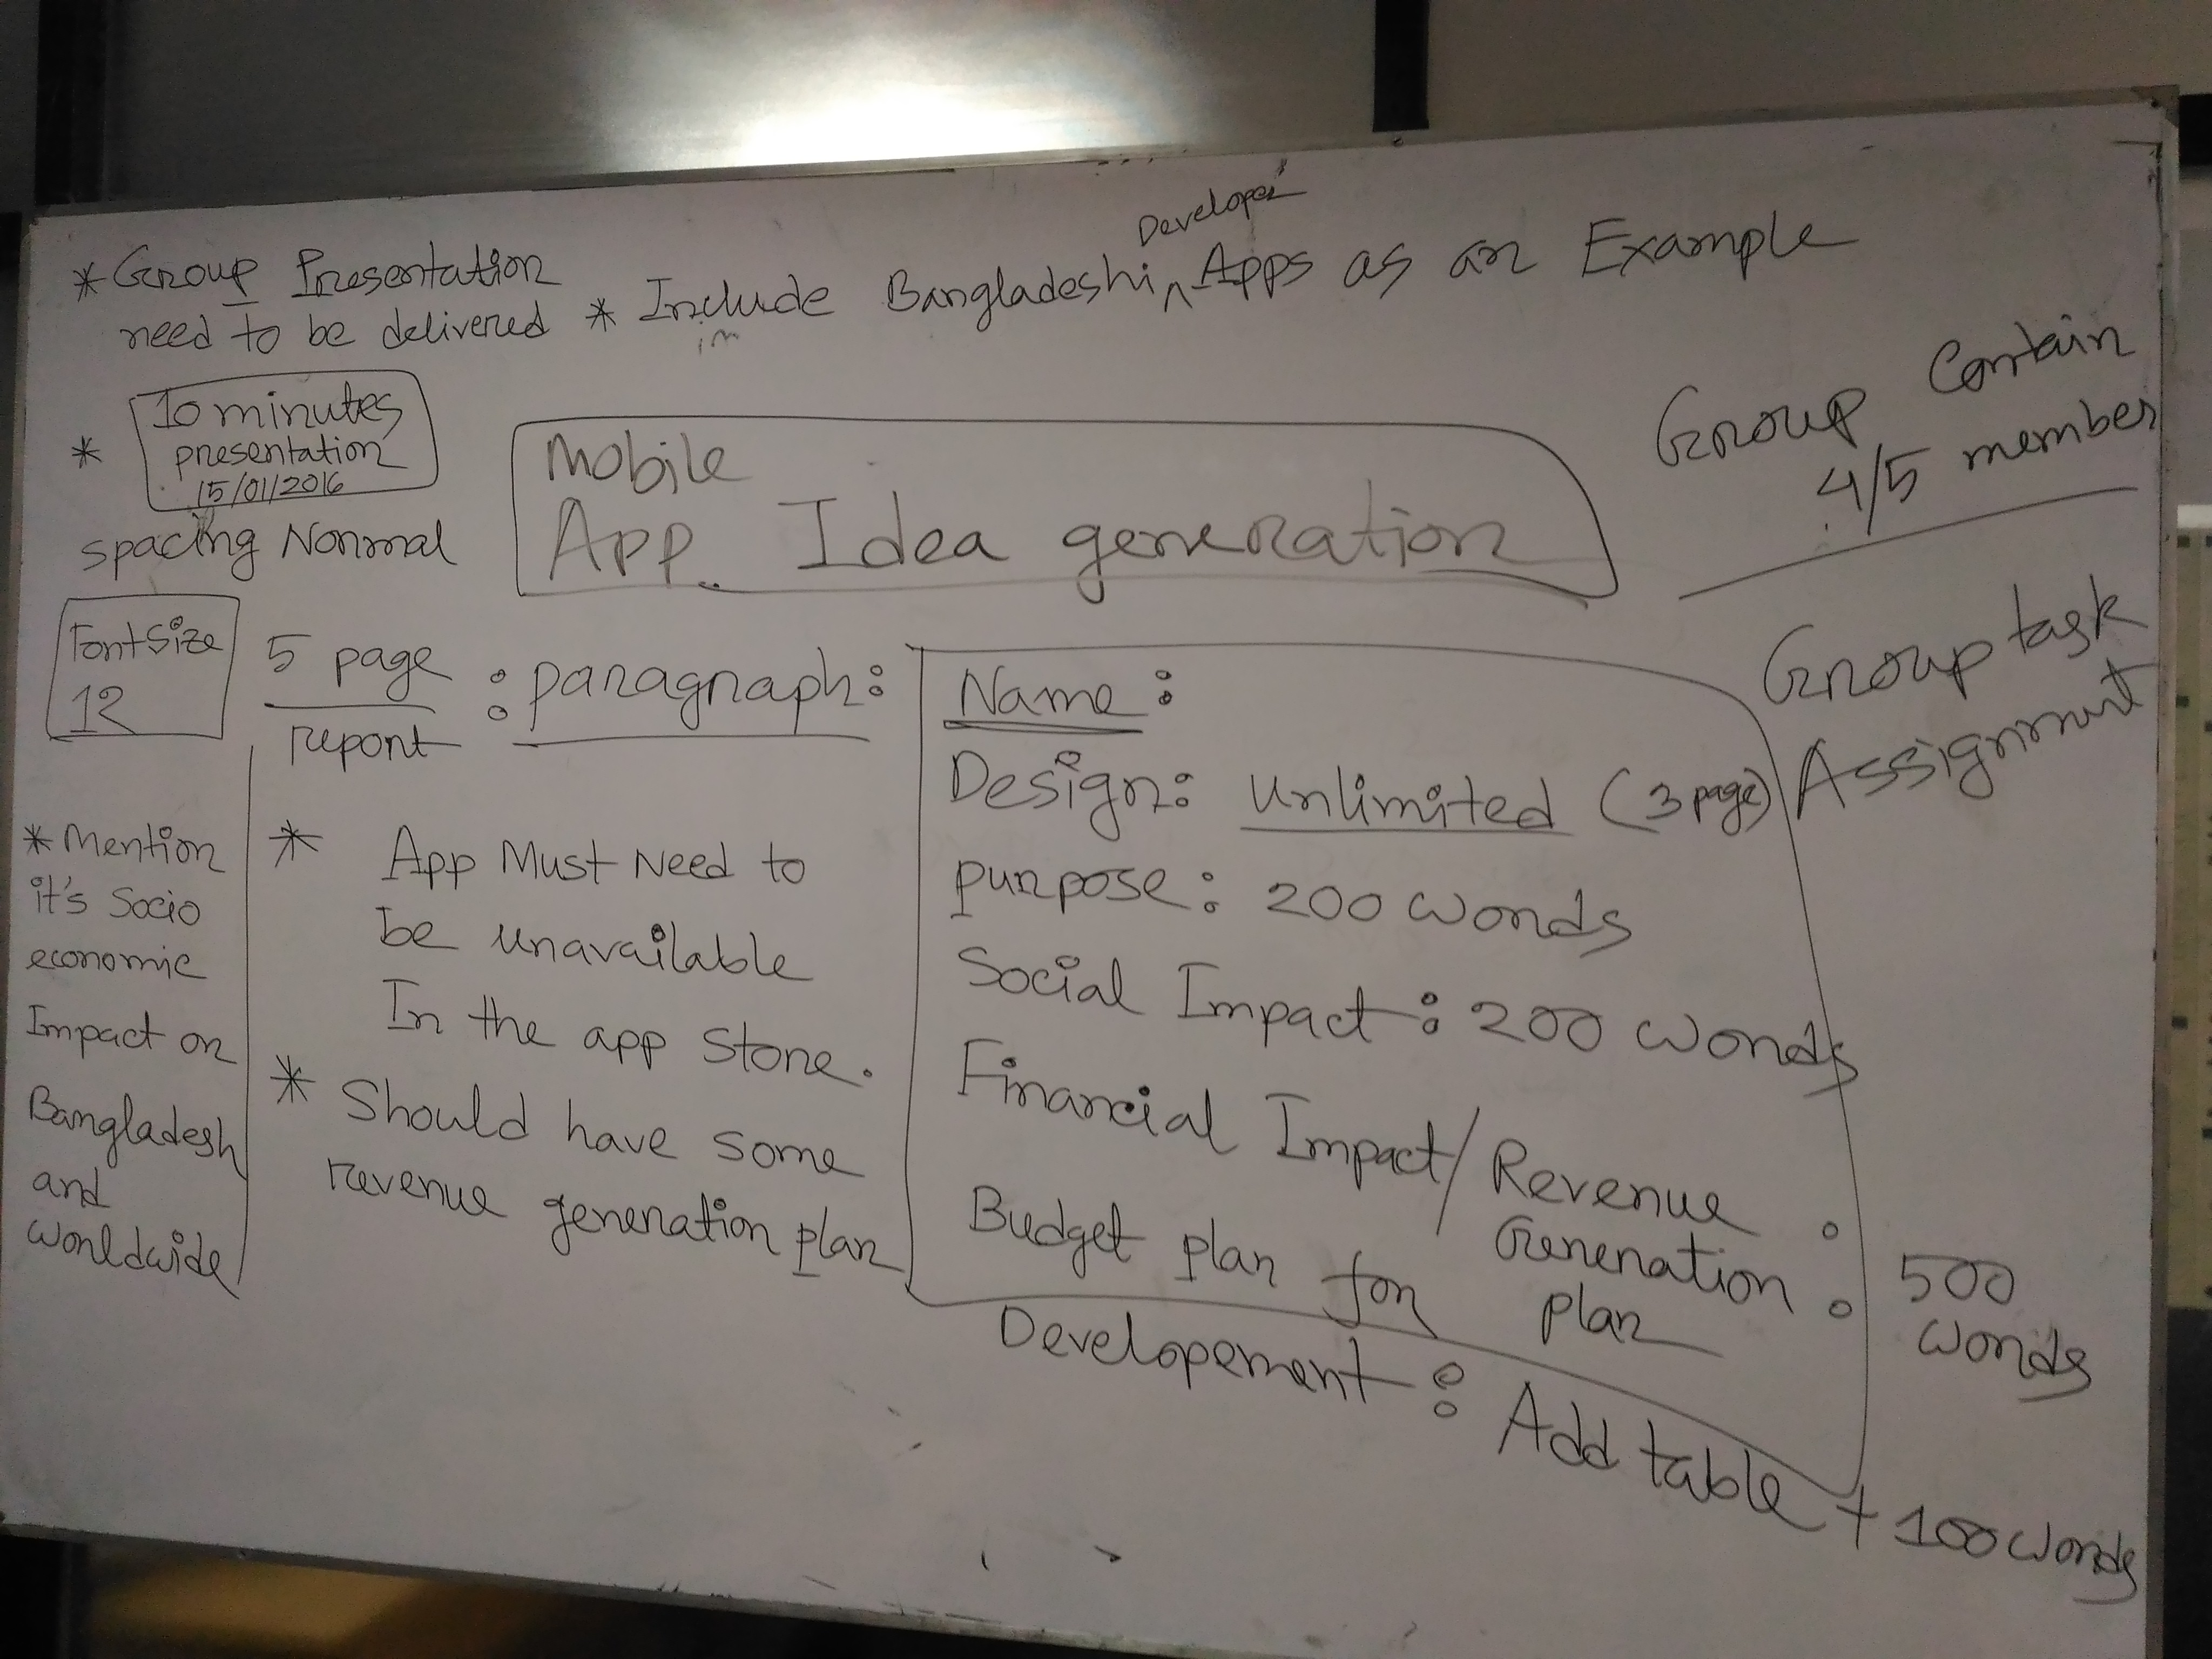 * Group Presentation
need to be delivered
* Include Bangladeshi ^ Developer's Apps as an Example
* 10 minutes
presentation
15/01/2016
spacing Normal
Mobile
App Idea generation
Group Contain
4/5 member
Group task
Assignment
Font Size
12
5 page
report
: paragraph:
* Mention
it's Socio
economic
Impact on
Bangladesh
and
worldwide
* App Must Need to
be unavailable
In the app store.
* Should have some
revenue generation plan
Name:
Design: Unlimited (3 page)
purpose: 200 words
Social Impact: 200 words
Financial Impact/Revenue
Generation
plan
: 500
words
Budget plan for
Developement: Add table + 100 words